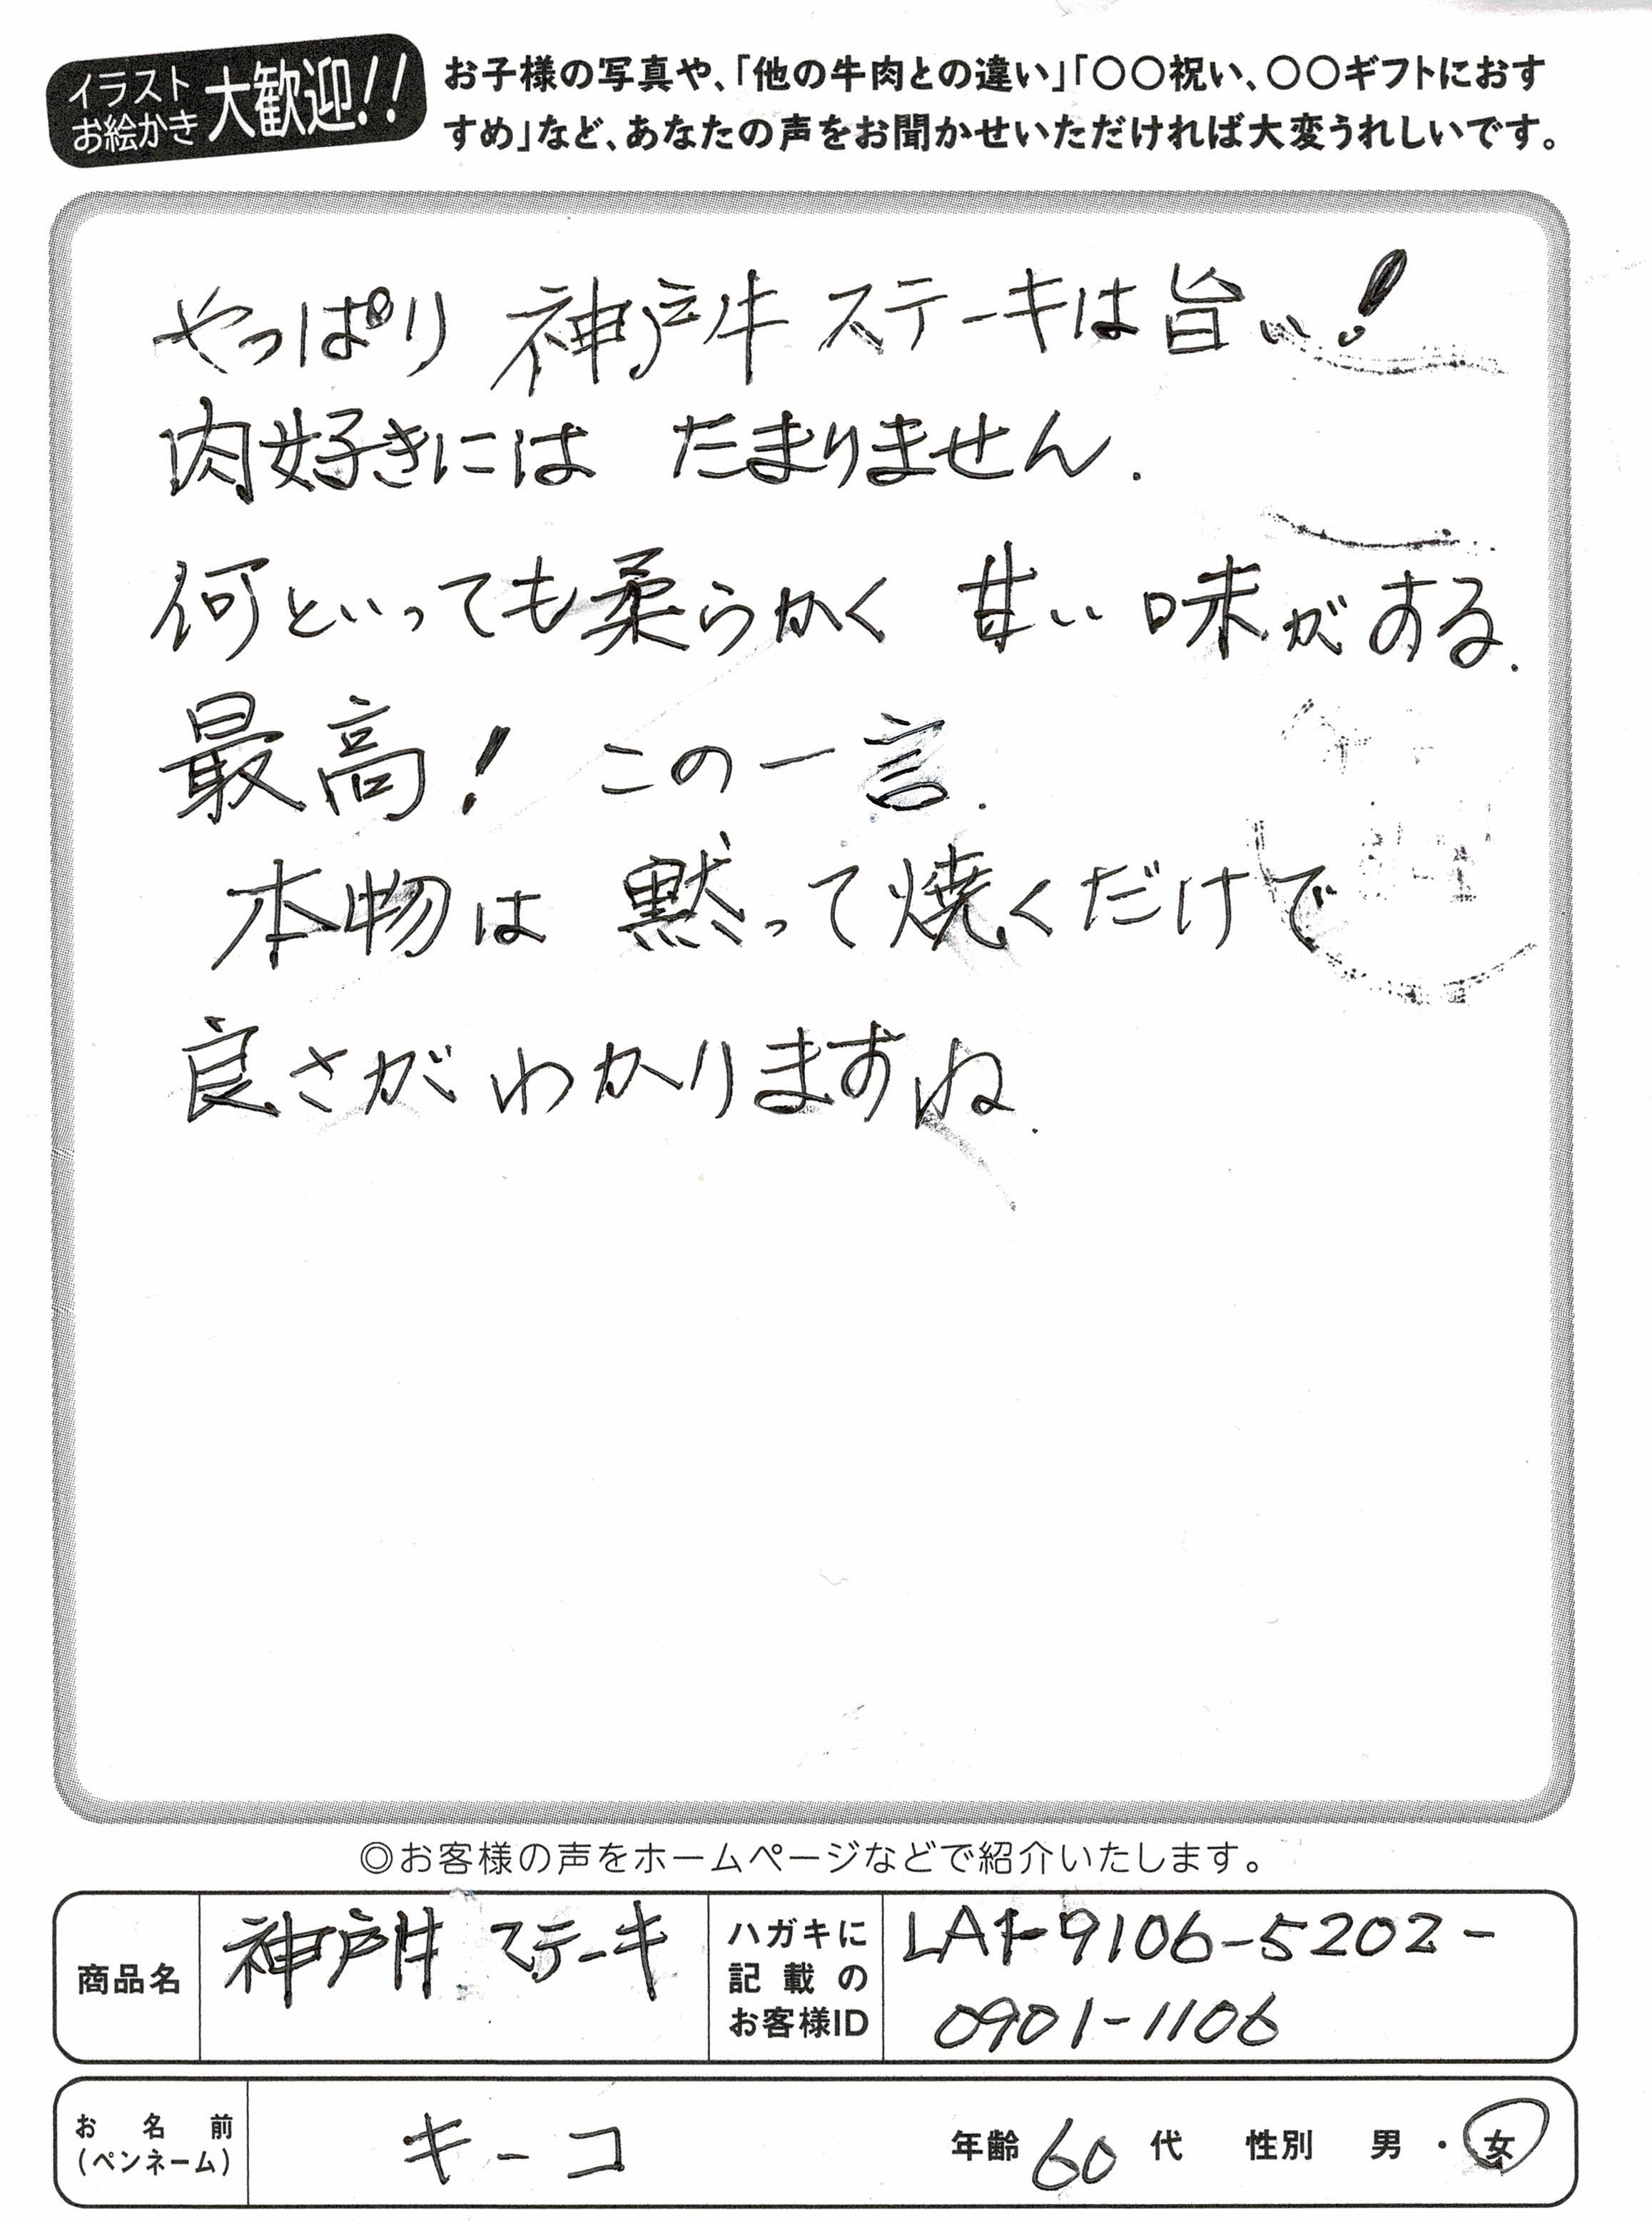 イラスト
お絵かき
大歓迎!!
お子様の写真や、「他の牛肉との違い」「〇〇祝い、〇〇ギフトにおす
すめ」など、あなたの声をお聞かせいただければ大変うれしいです。
やっぱり 神戸牛 ステーキは旨い!
肉好きには たまりません.
何といっても柔らかく 甘い 味がする.
最高! この一言.
本物は 黙って焼くだけで
良さが わかりますね.
◎お客様の声をホームページなどで紹介いたします。
商品名
神戸牛 ステーキ
ハガキに
記載の
お客様ID
9106-5202-
0901-1106
お名前
(ペンネーム)
キーコ
年齢 60 代 性別 男 ・ 女